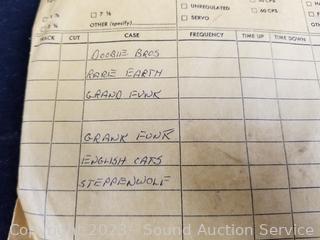 1 7/8
7 1/2
UNREGULATED
60 CPS
SERVO
OTHER (specify)
TRACK CUT CASE FREQUENCY TIME UP TIME DOWN
DOOBIE BROS
RARE EARTH
GRAND FUNK
GRANK FUNK
ENGLISH CATS
STEPPENWOLF
Copyright 2023 - Sound Auction Service